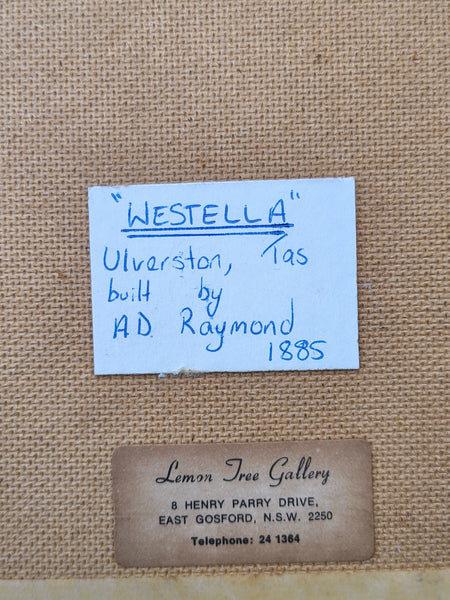 "WESTELLA"
Ulverston, Tas
built by
A.D. Raymond
1885
Lemon Tree Gallery
8 HENRY PARRY DRIVE,
EAST GOSFORD, N.S.W. 2250
Telephone: 24 1364